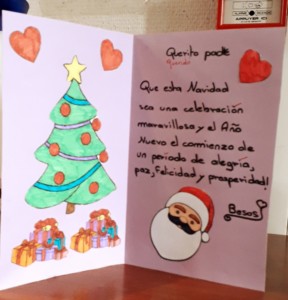 Querito padre
Querido
Que esta Navidad
sea una celebración
maravillosa y el Año
Nuevo el comienzo de
un periodo de alegría,
paz, Felicidad y prosperidad!
Besos